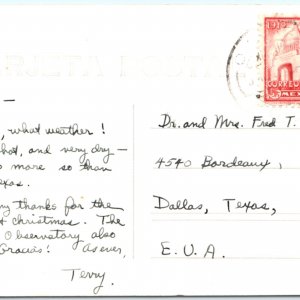 TARJETA POSTAL
1910
CORREOS
MEX
—
, what weather!
hot, and very dry —
more so than
exas.
thanks for the
t christmas. The
Observatory also
Gracias! As ever,
Terry.
Dr. and Mrs. Fred T.
4540 Bordeaux,
Dallas, Texas,
E. U. A.